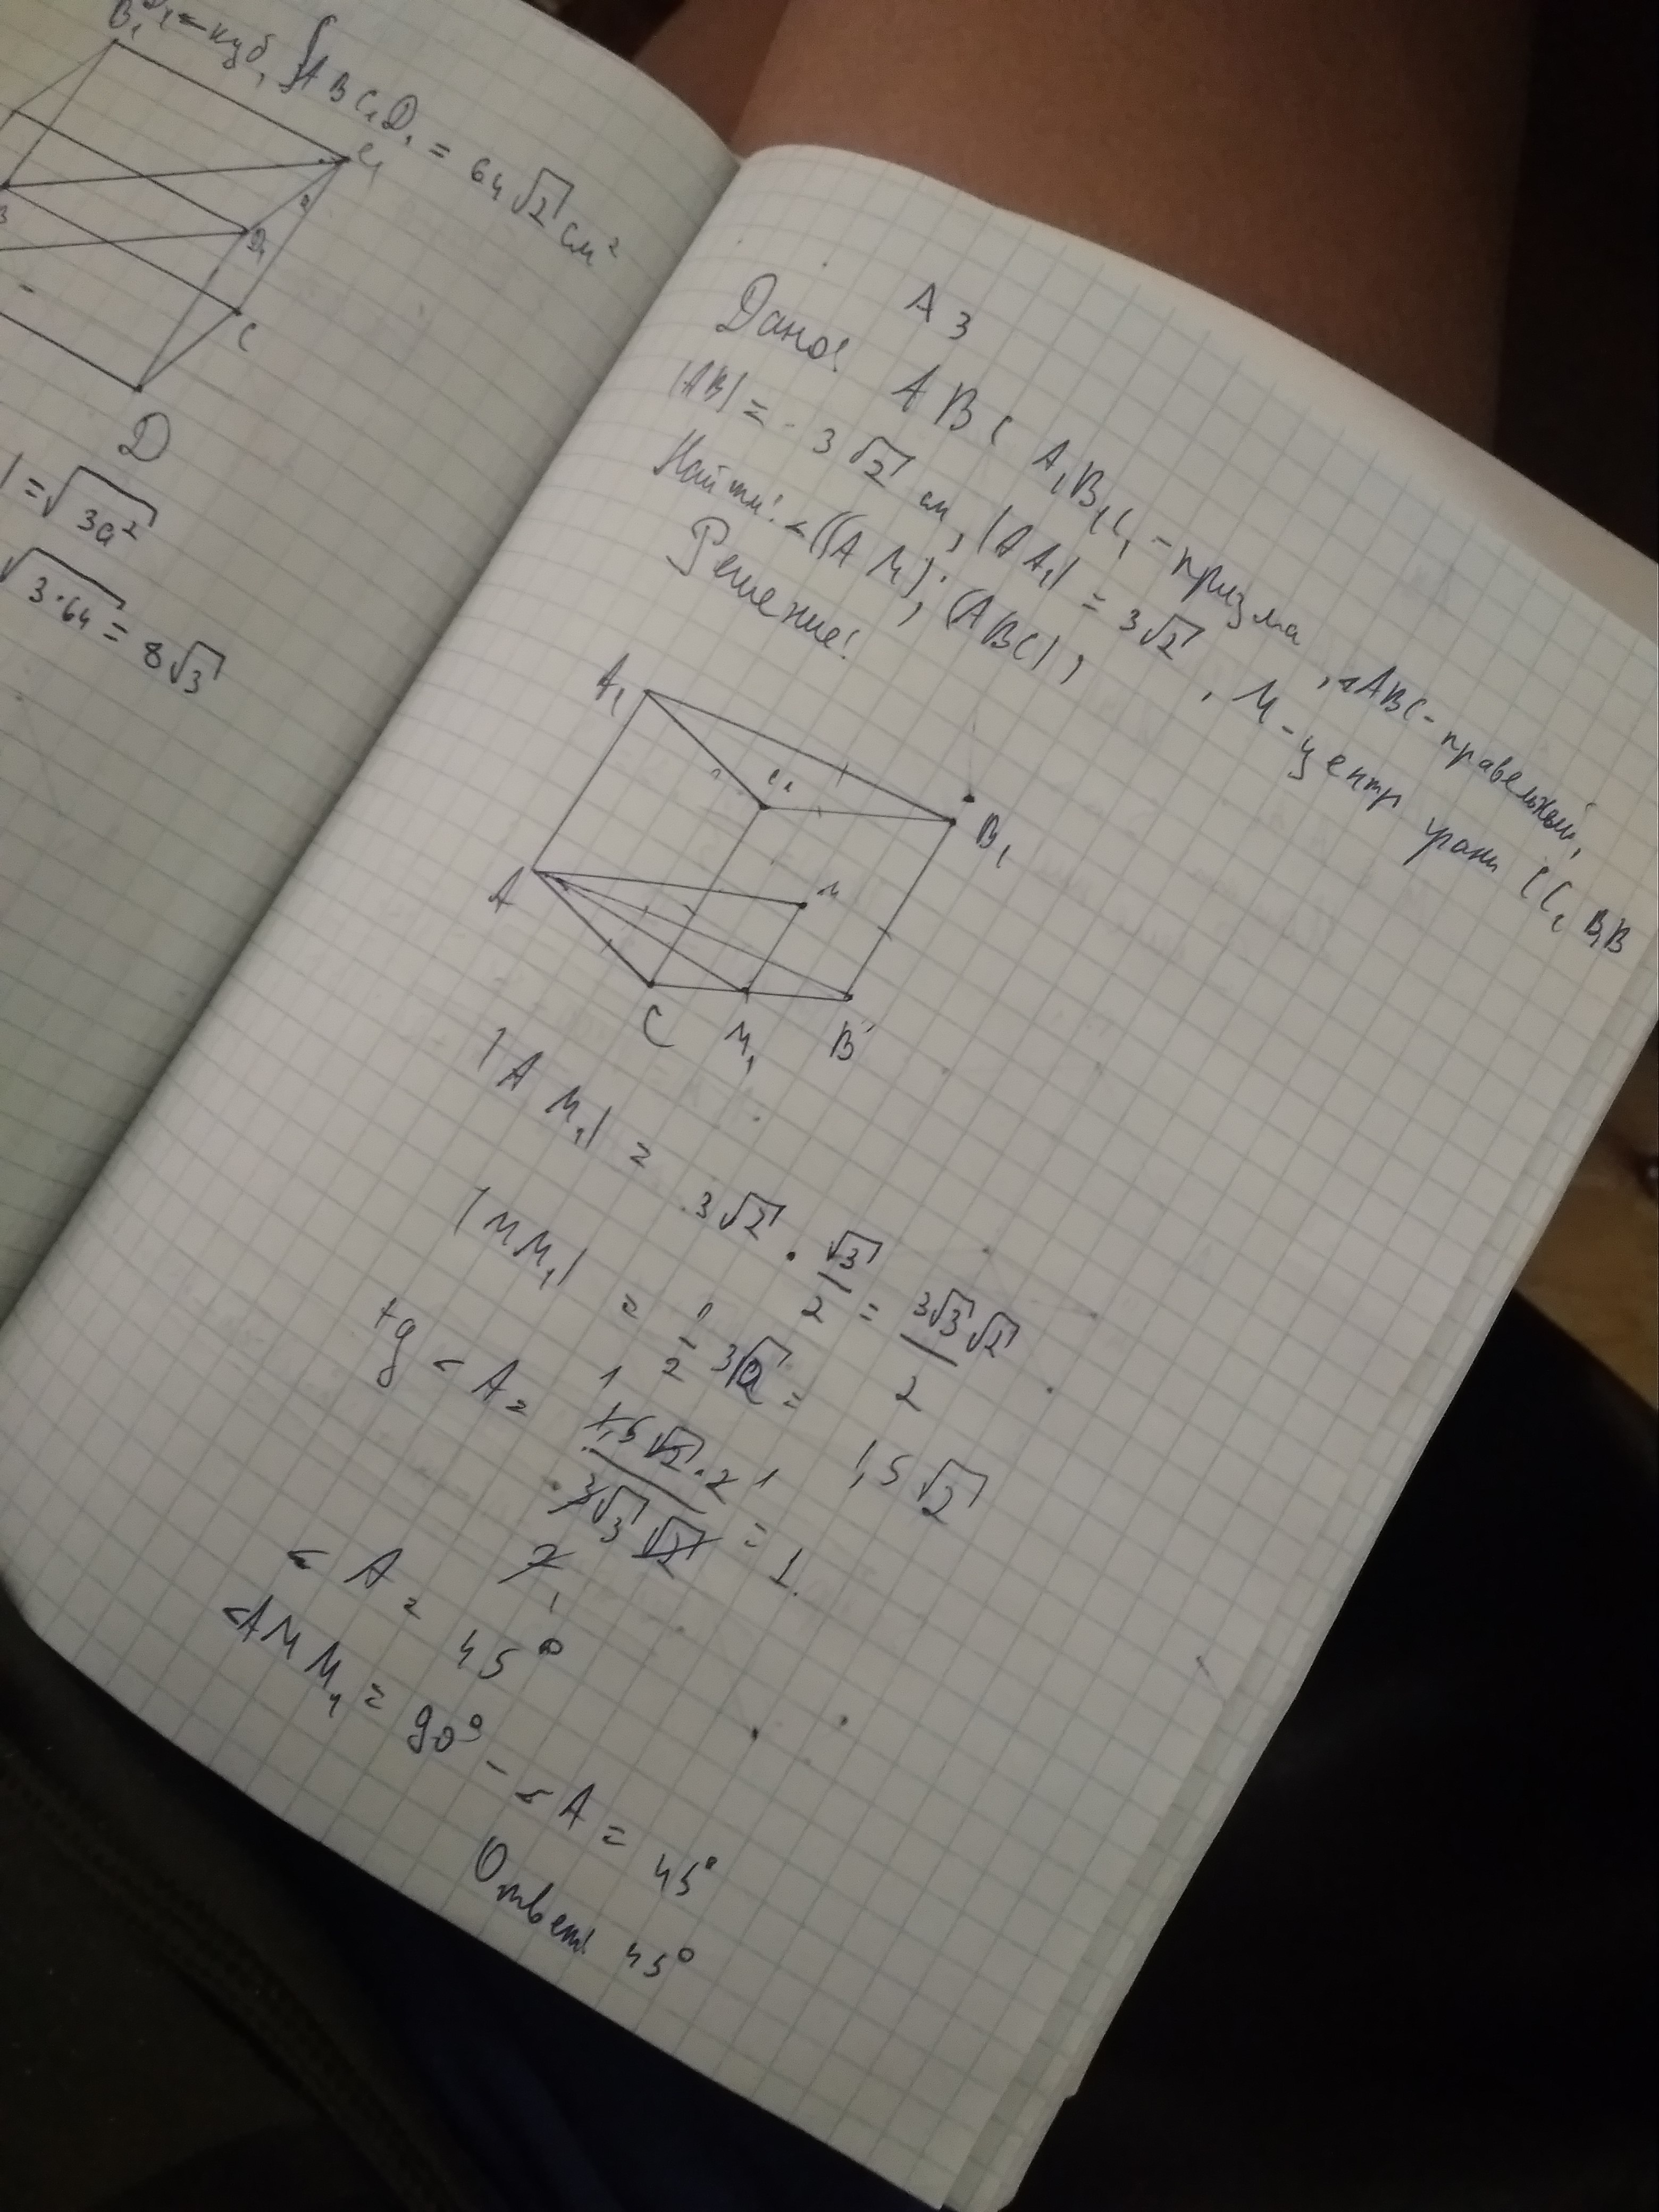 B₁
D₁ – куб, ∫ABC₁D₁ = 64√2 см²
C₁
a
D₁
B
C
D
| = √3a²
√3·64 = 8√3
A 3
Дано: ABC A₁B₁C₁ – призма, ΔABC – правельный,
|AB| = 3√2 см, |AA₁| = 3√2, M – центр грани CC₁B₁B
Найти: <((AM); (ABC));
Решение:
A₁
C₁
B₁
A
M
C
M₁
B
|AM₁| = 3√2 · √3/2 = 3√3√2/2
|MM₁| = 1/2 3√2 = 1,5√2
tg < A = 1,5√2·2 / 3√3√2 = 1.
< A = 45°
<AMM₁ = 90° – < A = 45°
Ответ: 45°